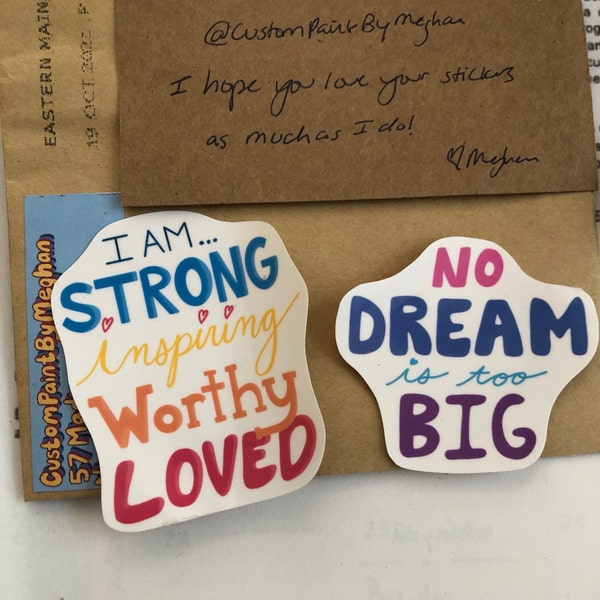 @CustomPaintByMeghan
I hope you love your stickers
as much as I do!
Meghan
EASTERN MAIN
19 OCT 202
CustomPaintByMeghan
57
I AM...
STRONG
inspiring
Worthy
LOVED
NO
DREAM
is too
BIG